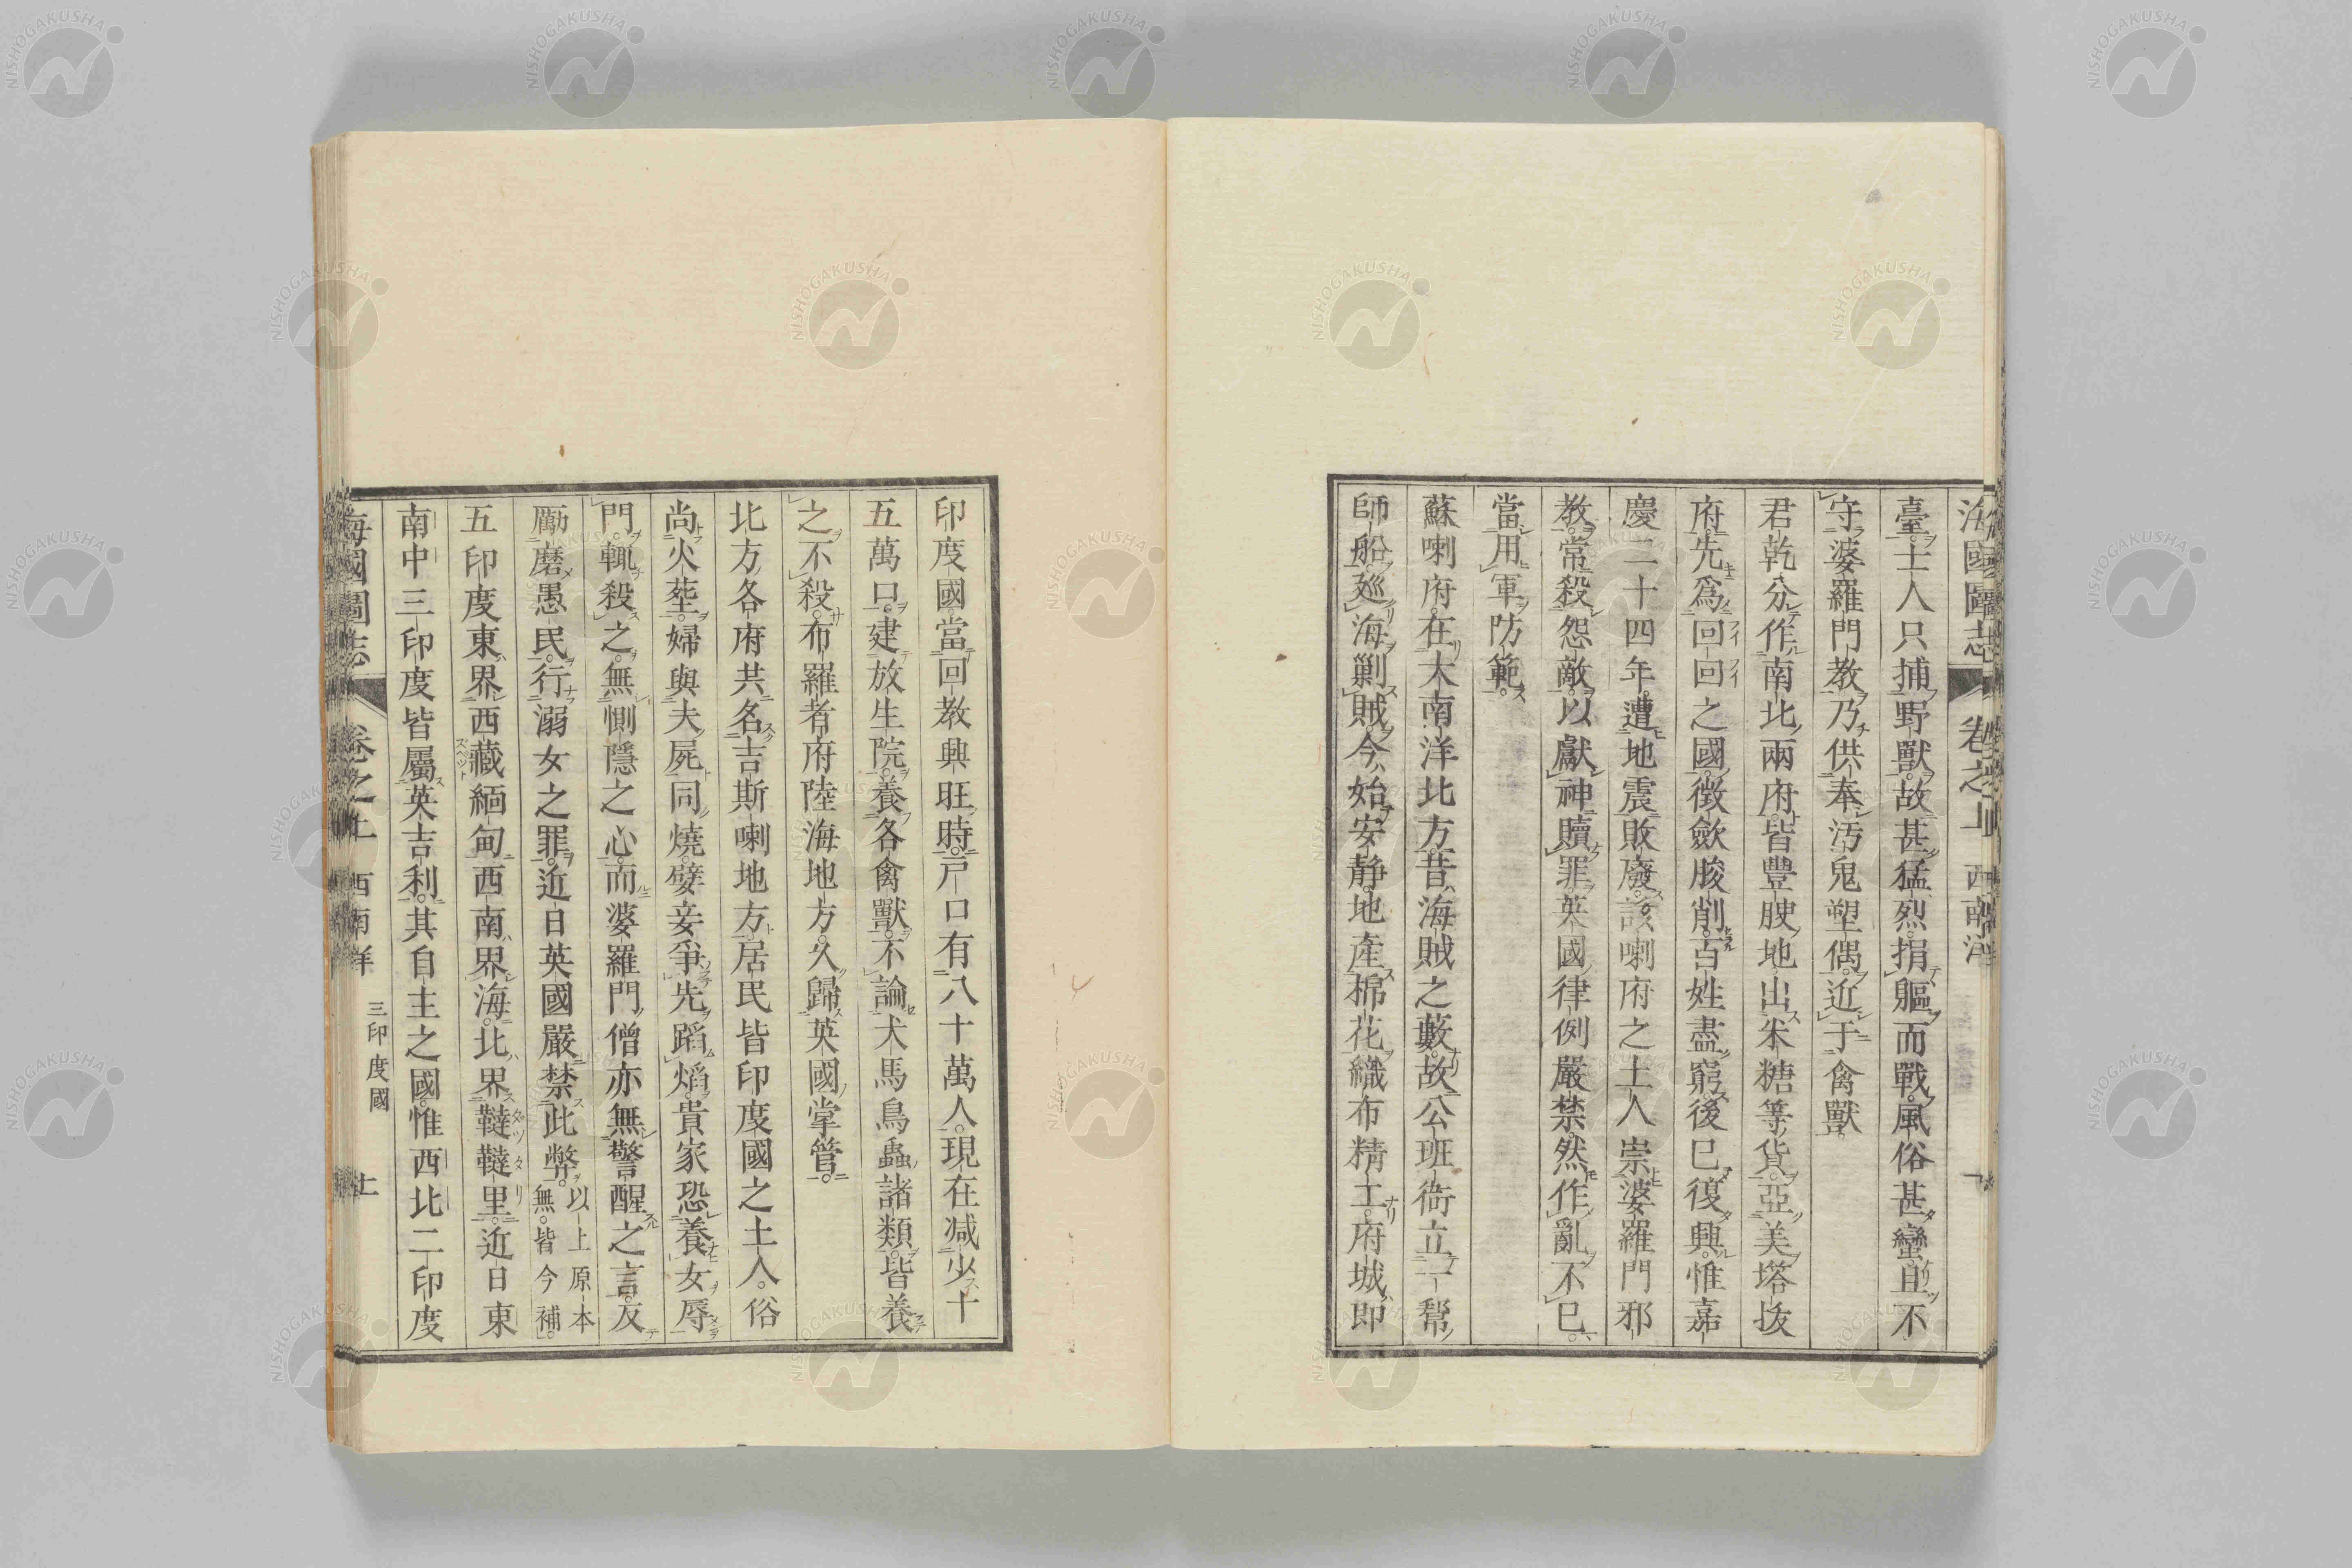 海國圖志 卷之十 西南洋
臺。士人只捕野獸。故甚猛烈。捐軀而戰。風俗甚蠻。且不
守婆羅門教。乃供奉汚鬼塑偶。近于禽獸。
君乾分作南北兩府。皆豐腴地。出米糖等貨。亞美塔拔
府。先爲回回之國。徴斂朘削。百姓盡窮。後已復興。惟嘉
慶二十四年。遭地震敗廢。該喇府之土人崇婆羅門邪
教。常殺怨敵。以獻神贖罪。英國律例嚴禁。然作亂不已。
當用軍防範。
蘇喇府在大南洋北方。昔海賊之藪。故公班衙立一幫
師船。廵海剿賊。今始安靜。地產棉花。織布精工。府城即
印度國當回教興旺時。戸口有八十萬人。現在減少十
五萬口。建放生院。養各禽獸。不論犬馬鳥蟲諸類。皆養
之不殺。布羅者府陸海地方。久歸英國掌管。
北方各府共名吉斯喇地方。居民皆印度國之土人。俗
尚火塟。婦與夫屍同燒。嬖妾爭先蹈焰。貴家恐養女辱
門。輒殺之。無惻隱之心。而婆羅門僧亦無警醒之言。反
勵磨愚民。行溺女之罪。近日英國嚴禁此弊。以上原本無。皆今補。
五印度東界西藏緬甸。西南界海。北界韃韃里。近日東
南中三印度皆屬英吉利。其自主之國惟西北二印度
海國圖志 卷之十 西南洋 三印度國
NISHOGAKUSHA